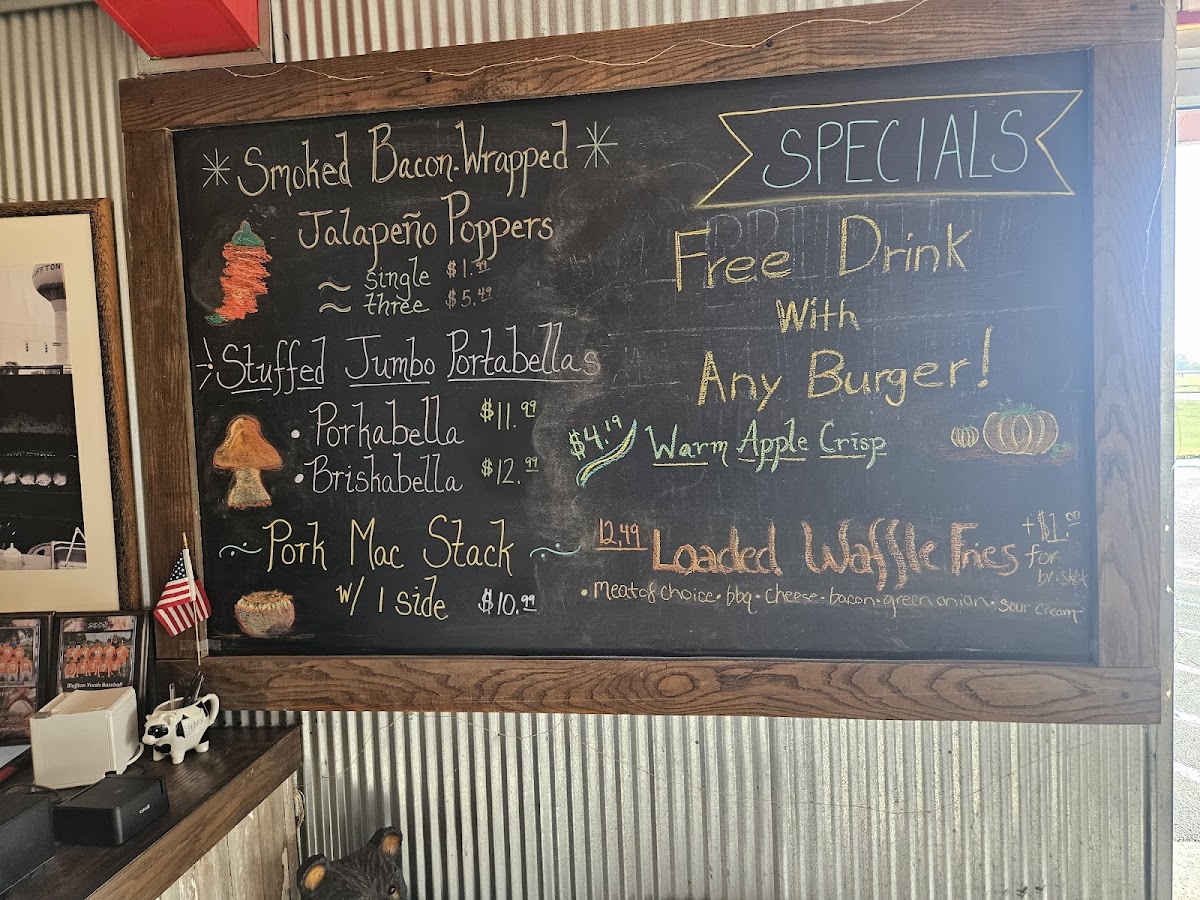 Smoked Bacon-Wrapped
Jalapeño Poppers
~ single $1.99
~ three $5.49
Stuffed Jumbo Portabellas
• Porkabella $11.99
• Briskabella $12.99
Pork Mac Stack
w/ 1 side $10.99
SPECIALS
Free Drink
With
Any Burger!
$4.19 Warm Apple Crisp
12.49 Loaded Waffle Fries +$1.00 for brisket
• Meat of choice • bbq • cheese • bacon • green onion • sour cream
FFTON
Bluffton Youth Baseball